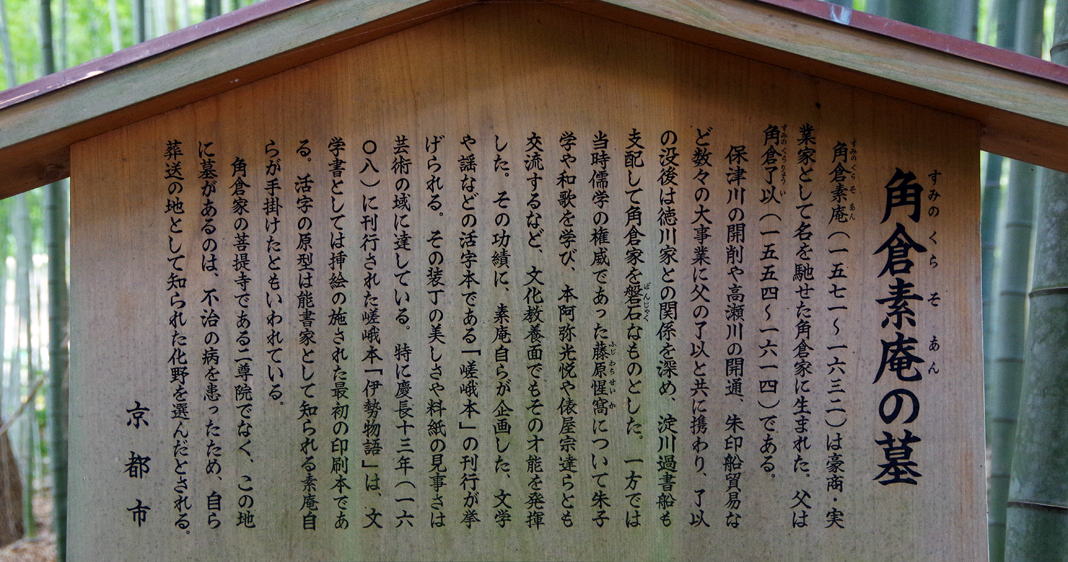 角倉素庵の墓
すみのくらそあん
角倉素庵(一五七一~一六三二)は豪商・実
すみのくらそあん
業家として名を馳せた角倉家に生まれた。父は
角倉了以(一五五四~一六一四)である。
すみのくらりょうい
保津川の開削や高瀬川の開通、朱印船貿易な
ど数々の大事業に父の了以と共に携わり、了以
の没後は徳川家との関係を深め、淀川過書船も
支配して角倉家を磐石なものとした。一方では
ばんじゃく
当時儒学の権威であった藤原惺窩について朱子
ふじわらせいか
学や和歌を学び、本阿弥光悦や俵屋宗達らとも
交流するなど、文化教養面でもその才能を発揮
した。その功績に、素庵自らが企画した、文学
や謡などの活字本である「嵯峨本」の刊行が挙
げられる。その装丁の美しさや料紙の見事さは
芸術の域に達している。特に慶長十三年(一六
〇八)に刊行された嵯峨本「伊勢物語」は、文
学書としては挿絵の施された最初の印刷本であ
る。活字の原型は能書家として知られる素庵自
らが手掛けたともいわれている。
角倉家の菩提寺である二尊院でなく、この地
に墓があるのは、不治の病を患ったため、自ら
葬送の地として知られた化野を選んだとされる。
京都市